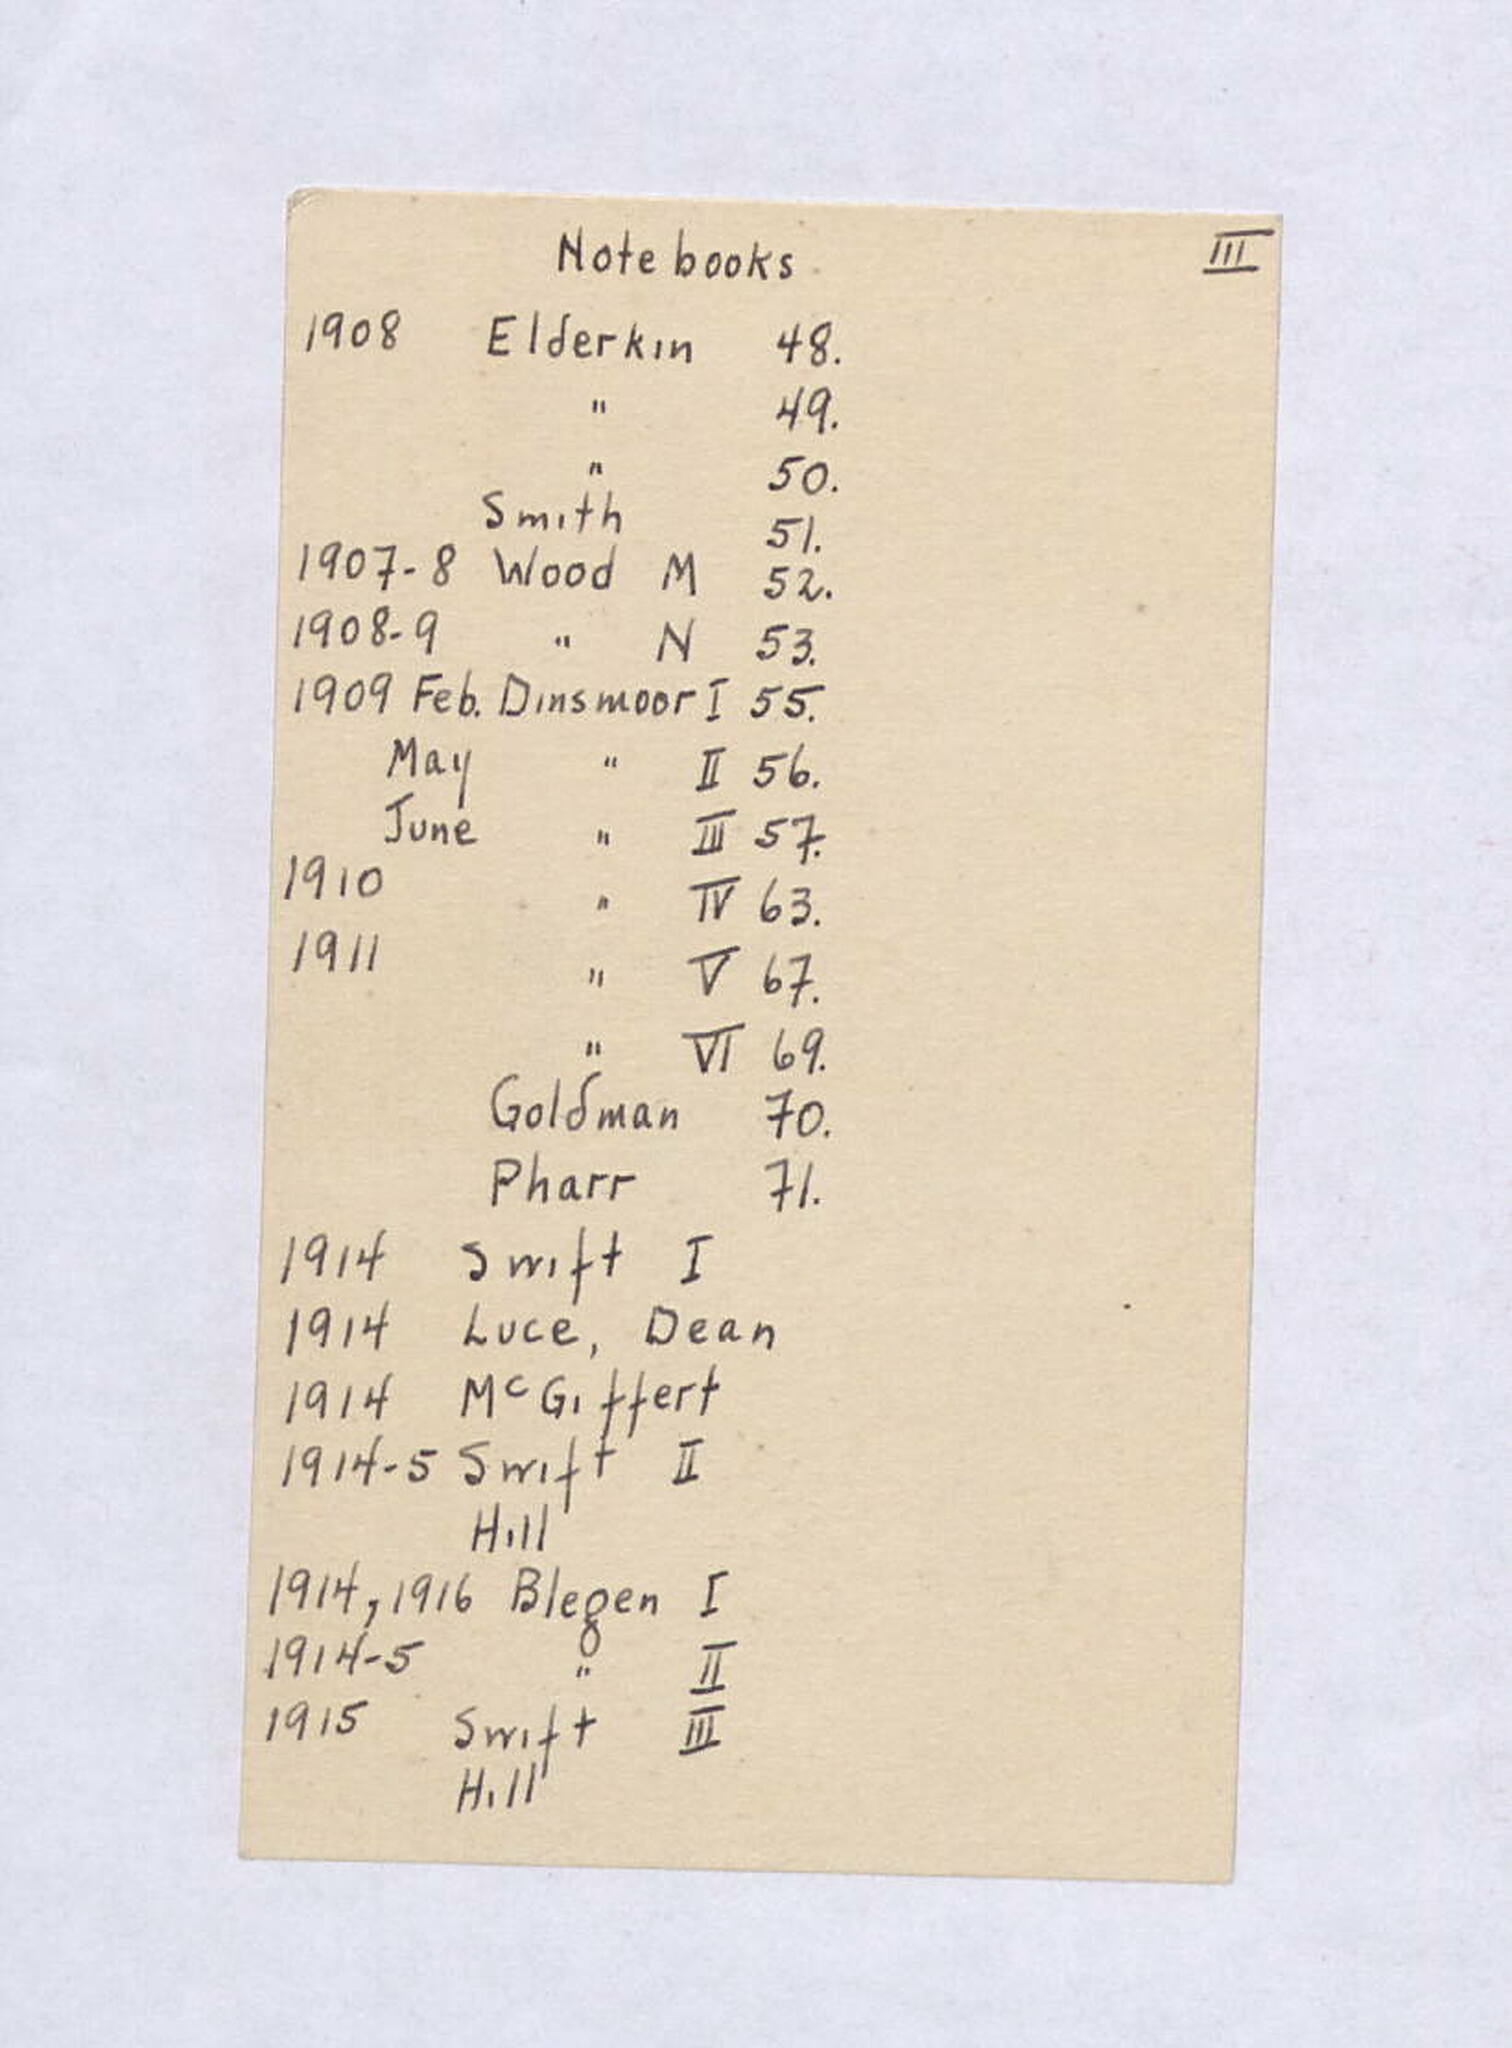 Notebooks III
1908 Elderkin 48.
" 49.
" 50.
Smith 51.
1907-8 Wood M 52.
1908-9 " N 53.
1909 Feb. Dinsmoor I 55.
May " II 56.
June " III 57.
1910 " IV 63.
1911 " V 67.
" VI 69.
Goldman 70.
Pharr 71.
1914 Swift I
1914 Luce, Dean
1914 McGiffert
1914-5 Swift II
Hill
1914, 1916 Blegen I
1914-5 " II
1915 Swift III
Hill